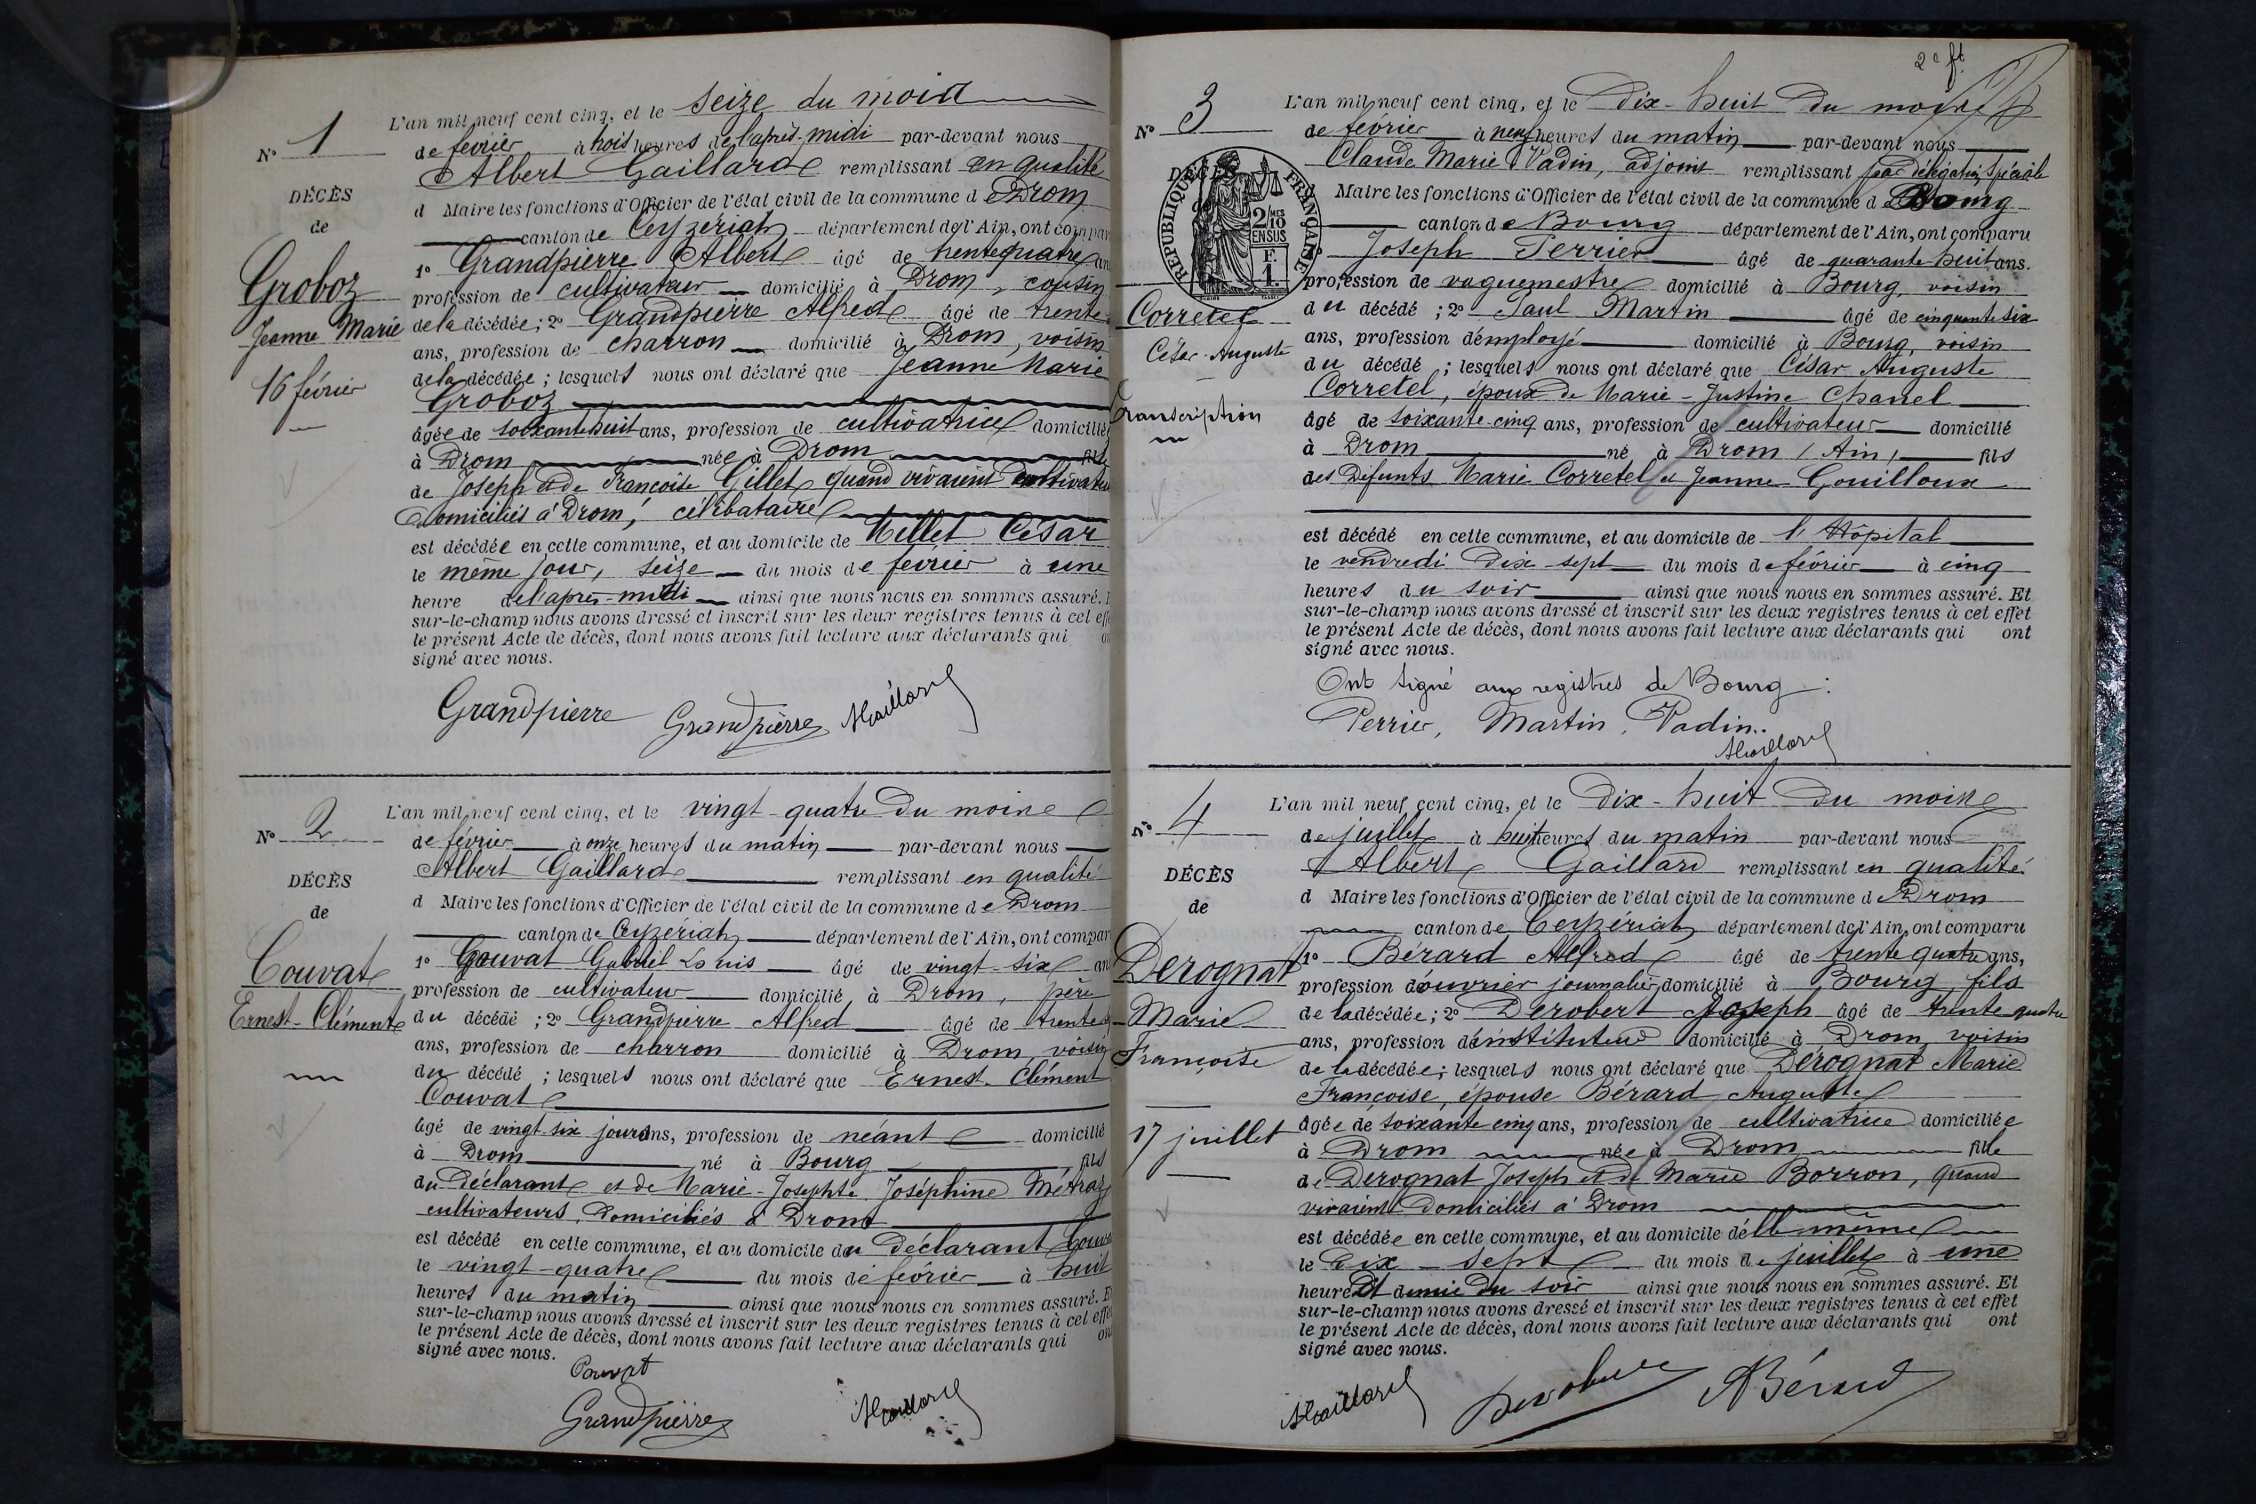 L'an mil neuf cent cinq, et le seize du mois
N° 1
de février à trois heures de l'après-midi par-devant nous
Albert Gaillard remplissant en qualité
DÉCÈS
d Maire les fonctions d'Officier de l'état civil de la commune de Drom
de
canton de Ceyzériat département de l'Ain, ont compar
Groboz
1° Grandpierre Albert âgé de trente quatre an
profession de cultivateur domicilié à Drom, cousin
Jeanne Marie
de la décédée; 2° Grandpierre Alfred âgé de trente
ans, profession de charron domicilié à Drom, voisin
16 février
de la décédée; lesquels nous ont déclaré que Jeanne Marie
Groboz
âgée de soixante huit ans, profession de cultivatrice domiciliée
à Drom née à Drom fille
de Joseph et de Françoise Gillet quand vivaient cultivateu
domiciliés à Drom, célibataire
est décédée en cette commune, et au domicile de Millet César
le même jour, seize du mois de février à une
heure de l'après-midi ainsi que nous nous en sommes assuré. E
sur-le-champ nous avons dressé et inscrit sur les deux registres tenus à cet eff
le présent Acte de décès, dont nous avons fait lecture aux déclarants qui on
signé avec nous.
Grandpierre Grandpierre AGaillard
L'an mil neuf cent cinq, et le vingt-quatre du moine
N° 2
de février à onze heures du matin par-devant nous
Albert Gaillard remplissant en qualité
DÉCÈS
d Maire les fonctions d'Officier de l'état civil de la commune de Drom
de
canton de Ceyzériat département de l'Ain, ont compar
Couvat
1° Couvat Gabriel Louis âgé de vingt-six an
profession de cultivateur domicilié à Drom, père
Ernest-Clément
du décédé; 2° Grandpierre Alfred âgé de trente
ans, profession de charron domicilié à Drom, voisin
du décédé; lesquels nous ont déclaré que Ernest-Clément
Couvat
âgé de vingt six jours ans, profession de néant domicilié
à Drom né à Bourg fils
du déclarant et de Marie-Josephte Joséphine Métraz
cultivateurs, domiciliés à Drom
est décédé en cette commune, et au domicile du déclarant Couva
le vingt-quatre du mois de février à huit
heures du matin ainsi que nous nous en sommes assuré. E
sur-le-champ nous avons dressé et inscrit sur les deux registres tenus à cet effe
le présent Acte de décès, dont nous avons fait lecture aux déclarants qui on
signé avec nous.
Couvat
Grandpierre AGaillard
2e ft
L'an mil neuf cent cinq, et le Dix-huit du mois
N° 3
de février à neuf heures du matin par-devant nous
Claude Marie Vadin, adjoint remplissant par délégation spéciale
DÉCÈS
RÉPUBLIQUE FRANÇAISE
2/10 MES
EN SUS
F.
1.
Maire les fonctions d'Officier de l'état civil de la commune de Bourg
canton de Bourg département de l'Ain, ont comparu
Joseph Perrier âgé de quarante-huit ans.
profession de vaguemestre domicilié à Bourg, voisin
Corretel
du décédé; 2° Paul Martin âgé de cinquante six
César-Auguste
ans, profession d'employé domicilié à Bourg, voisin
du décédé; lesquels nous ont déclaré que César Auguste
Corretel, époux de Marie-Justine Chanel
Transcription
âgé de soixante-cinq ans, profession de cultivateur domicilié
à Drom né à Drom (Ain) fils
des Défunts Marie Corretel et Jeanne Gouilloux
est décédé en cette commune, et au domicile de l'Hôpital
le vendredi Dix-sept du mois de février à cinq
heures du soir ainsi que nous nous en sommes assuré. Et
sur-le-champ nous avons dressé et inscrit sur les deux registres tenus à cet effet
le présent Acte de décès, dont nous avons fait lecture aux déclarants qui ont
signé avec nous.
Ont signé aux registres de Bourg:
Perrier, Martin, Vadin.
AGaillard
L'an mil neuf cent cinq, et le Dix-huit du moine
N° 4
de juillet à huit heures du matin par-devant nous
Albert Gaillard remplissant en qualité
DÉCÈS
d Maire les fonctions d'Officier de l'état civil de la commune de Drom
de
canton de Ceyzériat département de l'Ain, ont comparu
Derognat
1° Bérard Alfred âgé de trente quatre ans,
profession d'ouvrier journalier, domicilié à Bourg, fils
Marie
de la décédée; 2° Derobert Joseph âgé de trente quatre
ans, profession d'instituteur domicilié à Drom, voisin
Françoise
de la décédée; lesquels nous ont déclaré que Derognat Marie
Françoise, épouse Bérard Auguste
17 juillet
âgée de soixante cinq ans, profession de cultivatrice domiciliée
à Drom née à Drom fille
de Derognat Joseph et de Marie Borron, quand
vivaient domiciliés à Drom
est décédée en cette commune, et au domicile d'elle même
le Dix-sept du mois de juillet à une
heure et demie du soir ainsi que nous nous en sommes assuré. Et
sur-le-champ nous avons dressé et inscrit sur les deux registres tenus à cet effet
le présent Acte de décès, dont nous avons fait lecture aux déclarants qui ont
signé avec nous.
AGaillard Derobert ABérard